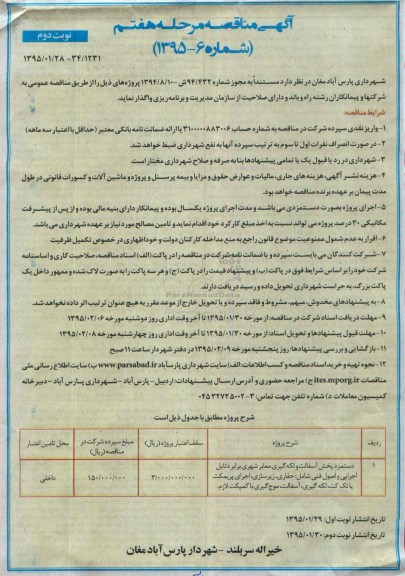 آگهی مناقصه مرحله هفتم
(شماره ۶-۱۳۹۵)
نوبت دوم
۱۳۹۵/۰۱/۲۸ - ۳۴/۱۲۳۱
شهرداری پارس آباد مغان در نظر دارد مستنداً به مجوز شماره ۹۴/۴۳۲ش-۱۳۹۴/۸/۱۰ پروژه های ذیل را از طریق مناقصه عمومی به
شرکتها و پیمانکاران رشته راه و باند و دارای صلاحیت از سازمان مدیریت و برنامه ریزی واگذار نماید.
شرایط مناقصه:
۱- واریز نقدی سپرده شرکت در مناقصه به شماره حساب ۳۱۰۰۰۰۰۸۸۳۰۰۶ یا ارائه ضمانت نامه بانکی معتبر (حداقل با اعتبار سه ماهه)
۲- در صورت انصراف نفرات اول تا سوم به ترتیب سپرده آنها به نفع شهرداری ضبط خواهد شد.
۳- شهرداری در رد یا قبول یک یا تمامی پیشنهادها بنا به صرفه و صلاح شهرداری مختار است.
۴- هزینه نشر آگهی، هزینه های جاری، مالیات و عوارض حقوق و مزایا و بیمه پرسنل و پروژه و ماشین آلات و کسورات قانونی در طول
مدت پیمان بر عهده برنده مناقصه خواهد بود.
۵- اجرای پروژه بصورت دستمزدی می باشد و مدت اجرای پروژه یکسال بوده و پیمانکار دارای بنیه مالی بوده و از پس از پیشرفت
مکانیکی ۳۰ درصد پروژه می تواند نسبت به اخذ مبلغ کارکرد خود اقدام نماید و تامین مصالح مورد نیاز بر عهده شهرداری می باشد.
۶- اقرار به عدم شمول ممنوعیت موضوع قانون راجع به منع مداخله کارکنان دولت و خوداظهاری در خصوص تکمیل ظرفیت
۷- شرکت کنندگان می بایست سپرده و یا ضمانت نامه شرکت در مناقصه را در پاکت (الف) اسناد مناقصه، صلاحیت کاری و اساسنامه
شرکت خود را بر اساس شرایط فوق در پاکت (ب) و پیشنهاد قیمت را در پاکت (ج) و هر سه پاکت را به صورت لاک شده و ممهور داخل یک
پاکت بزرگ، به حراست شهرداری تحویل داده و رسید دریافت دارند.
۸- به پیشنهادهای مخدوش، مبهم، مشروط و فاقد سپرده و یا تحویل خارج از موعد مقرر به هیچ عنوان ترتیب اثر داده نخواهد شد.
۹- مهلت دریافت اسناد شرکت در مناقصه: از مورخه ۱۳۹۵/۰۱/۳۰ تا آخر وقت اداری روز دوشنبه مورخه ۱۳۹۵/۰۲/۰۶
۱۰- مهلت قبول پیشنهادها و تحویل اسناد: از مورخه ۱۳۹۵/۰۱/۳۰ تا آخر وقت اداری روز چهارشنبه مورخه ۱۳۹۵/۰۲/۰۸
۱۱- بازگشایی و بررسی پیشنهادها: روز پنجشنبه مورخه ۱۳۹۵/۰۲/۰۹ در دفتر شهردار ساعت ۱۱ صبح
۱۲- نحوه تهیه و خرید اسناد مناقصه و کسب اطلاعات: الف) سایت شهرداری پارسآباد www.parsabad.ir ب) سایت اطلاع رسانی ملی
مناقصات ites.mporg.ir ج) مراجعه حضوری و آدرس ارسال پیشنهادات: اردبیل - پارس آباد - شهرداری پارس آباد - دبیرخانه
کمیسیون معاملات د) شماره تلفن جهت تماس: ۳-۰۴۵۳۲۷۲۵۰۰۲
شرح پروژه مطابق با جدول ذیل است
ردیف شرح پروژه سقف اعتبار پروژه (ریال) مبلغ سپرده شرکت در مناقصه (ریال) محل تامین اعتبار
۱ دستمزد پخش آسفالت و لکه گیری معابر شهری برابر دلایل ۳/۰۰۰/۰۰۰/۰۰۰ ۱۵۰/۰۰۰/۰۰۰ داخلی
اجرایی و اصول فنی شامل: حفاری، زیرسازی، اجرای پریمکت
یا تک کت، لکه گیری، آسفالت، موج گیری با کمپکت لازم.
تاریخ انتشار نوبت اول: ۱۳۹۵/۰۱/۲۹
تاریخ انتشار نوبت دوم: ۱۳۹۵/۰۱/۳۰
خیراله سربلند - شهردار پارس آباد مغان